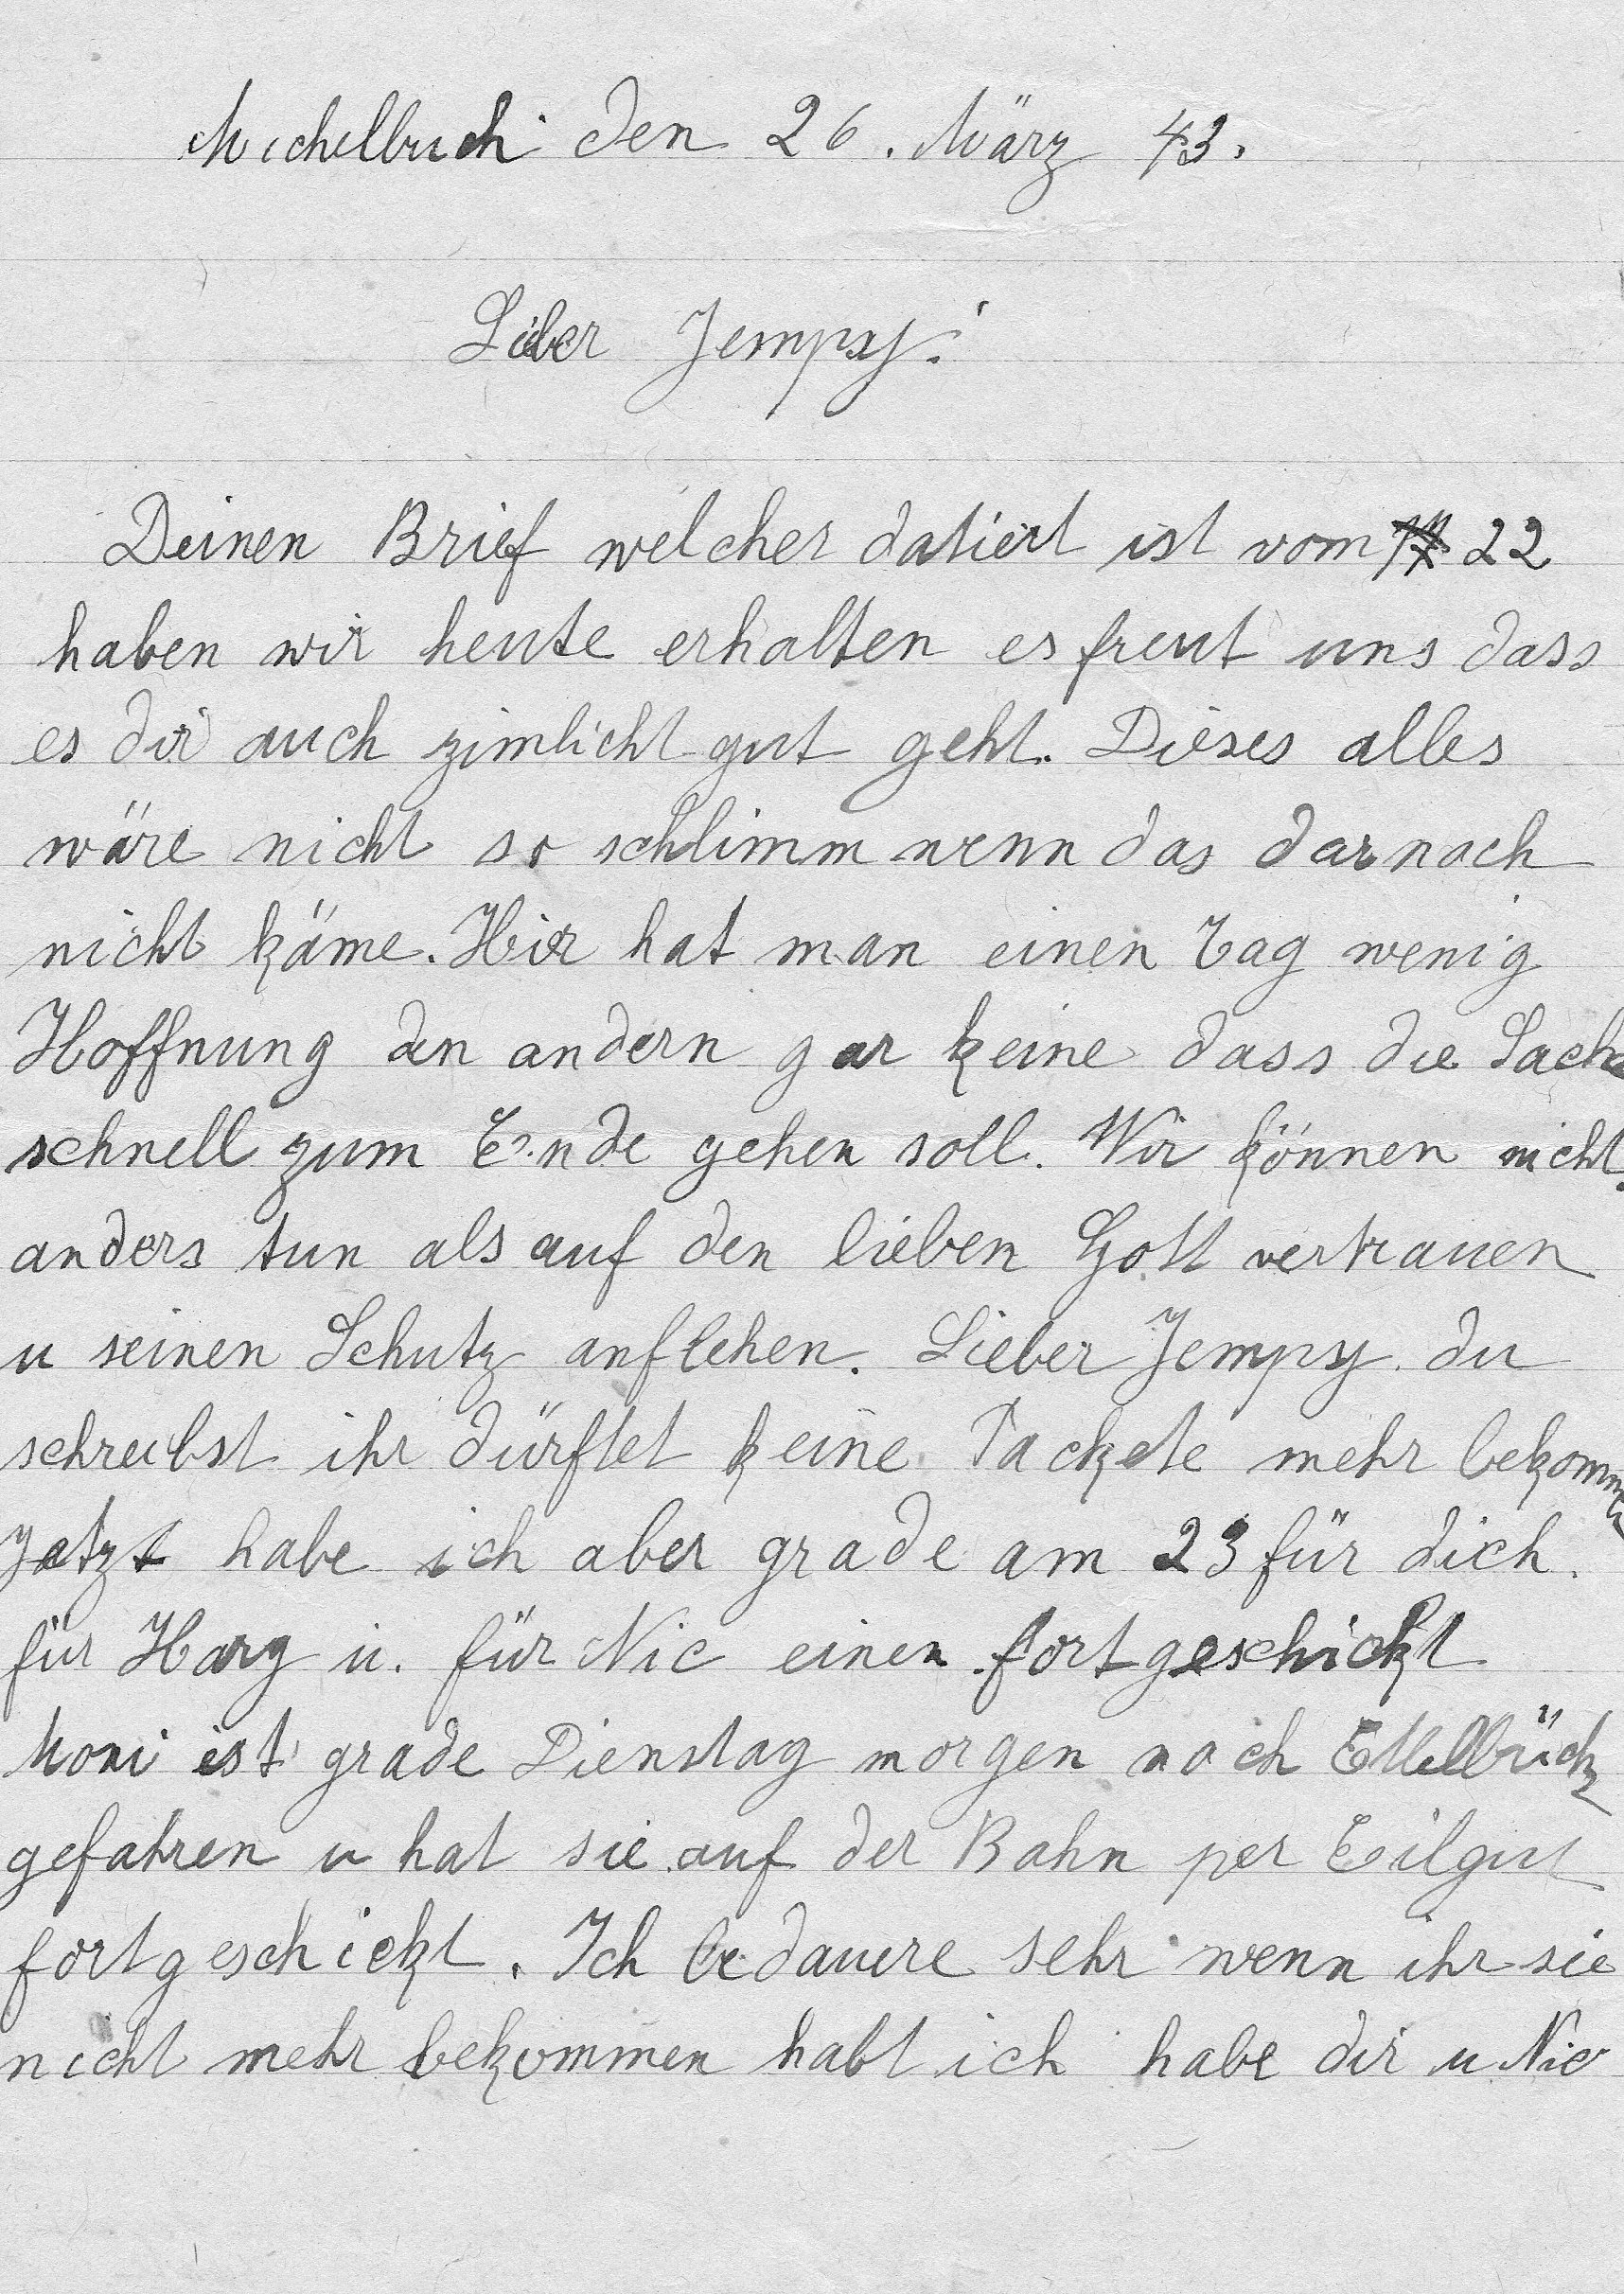 Michelbuch den 26. März 43.
Lieber Jempy!
Deinen Brief welcher datiert ist vom 22
haben wir heute erhalten es freut uns dass
es dir auch zimlicht gut geht. Dieses alles
wäre nicht so schlimm wenn das darnach
nicht käme. Hier hat man einen Tag wenig
Hoffnung den andern gar keine dass die Sache
schnell zum Ende gehen soll. Wir können nicht
anders tun als auf den lieben Gott vertrauen
u seinen Schutz anflehen. Lieber Jempy du
schreibst ihr dürftet keine Packete mehr bekommen
Jetzt habe ich aber grade am 23 für dich.
für Harry u. für Nic einen fortgeschickt
Moni ist grade Dienstag morgen nach Ettelbrück
gefahren u hat sie auf der Bahn per Eilgut
fortgeschickt. Ich bedauere sehr wenn ihr sie
nicht mehr bekommen habt ich habe dir u Nic